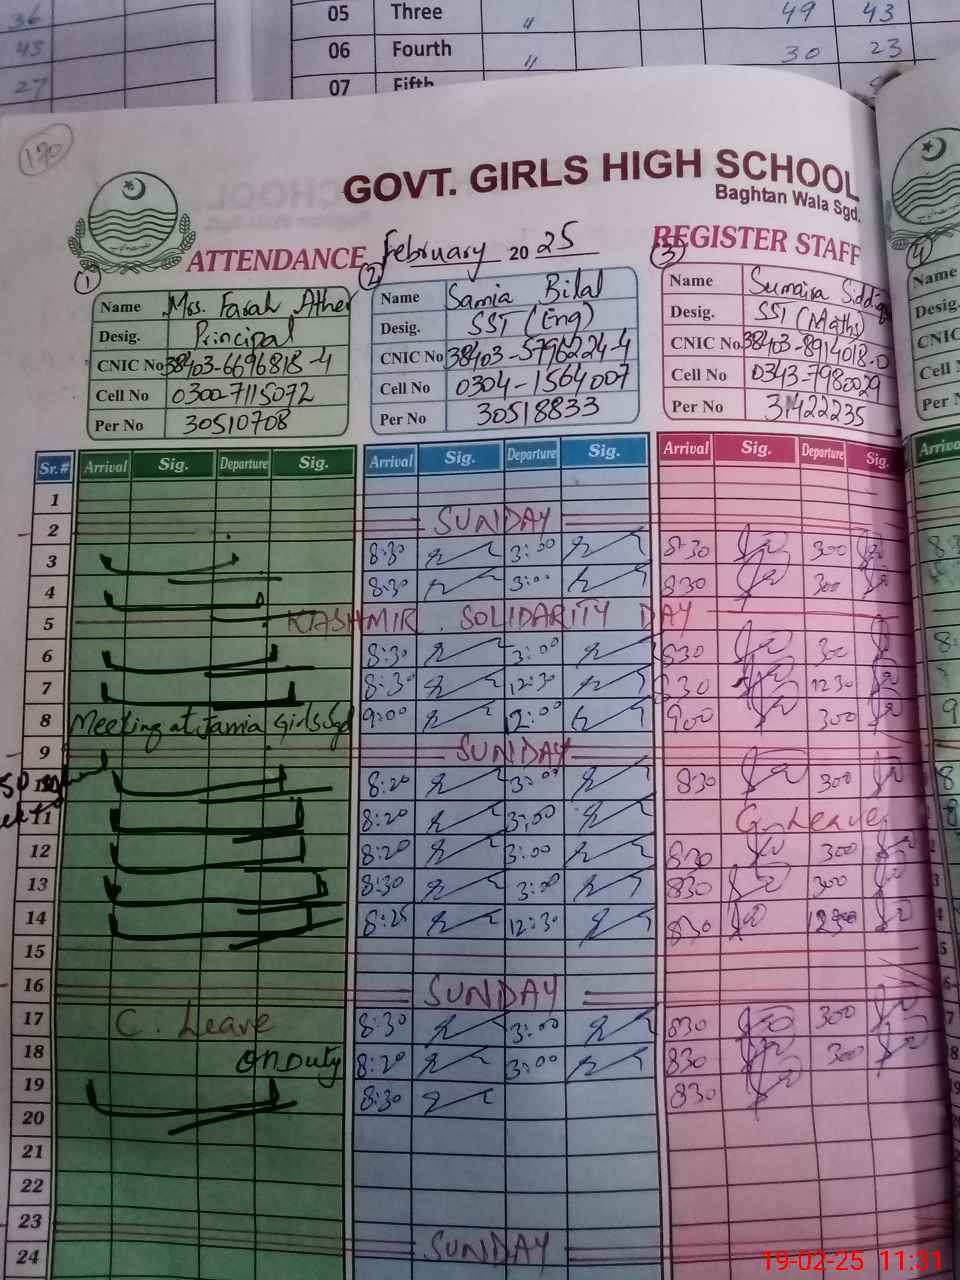 36
43
27
05 Three " 49 43
06 Fourth " 30 23
07 Fifth
170
GOVT. GIRLS HIGH SCHOOL
Baghtan Wala Sgd.
ATTENDANCE February 2025 REGISTER STAFF
1 2 3 4
Name Mrs. Farah Ather
Desig. Principal
CNIC No 38403-6696818-4
Cell No 0300-7115072
Per No 30510708
Name Samia Bilal
Desig. SST (Eng)
CNIC No 38403-5796224-4
Cell No 0304-1564007
Per No 30518833
Name Sumaira
Desig. SST (Maths)
CNIC No. 38403-8914018-0
Cell No 0343-7980029
Per No 31422235
Name
Desig.
CNIC
Cell
Per N
Sr.# Arrival Sig. Departure Sig. Arrival Sig. Departure Sig. Arrival Sig. Departure Sig. Arrival
1
2 SUNDAY
3 8:30 3:00 8:30 300
4 8:30 3:00 830 300
5 KASHMIR SOLIDARITY DAY
6 8:30 3:00 830 300
7 8:30 12:30 830 1230
8 Meeting at Jamia Girls Sgd 9:00 2:00 900 300
9 SUNDAY
10 8:20 3:00 830 300
11 8:20 3:00 C. Leave
12 8:20 3:00 830 300
13 8:30 3:00 830 300
14 8:25 12:30 830 1230
15
16 SUNDAY
17 C. Leave 8:30 3:00 830 300
18 On Duty 8:20 3:00 830 300
19 8:30 830
20
21
22
23
24 SUNDAY
19-02-25 11:31